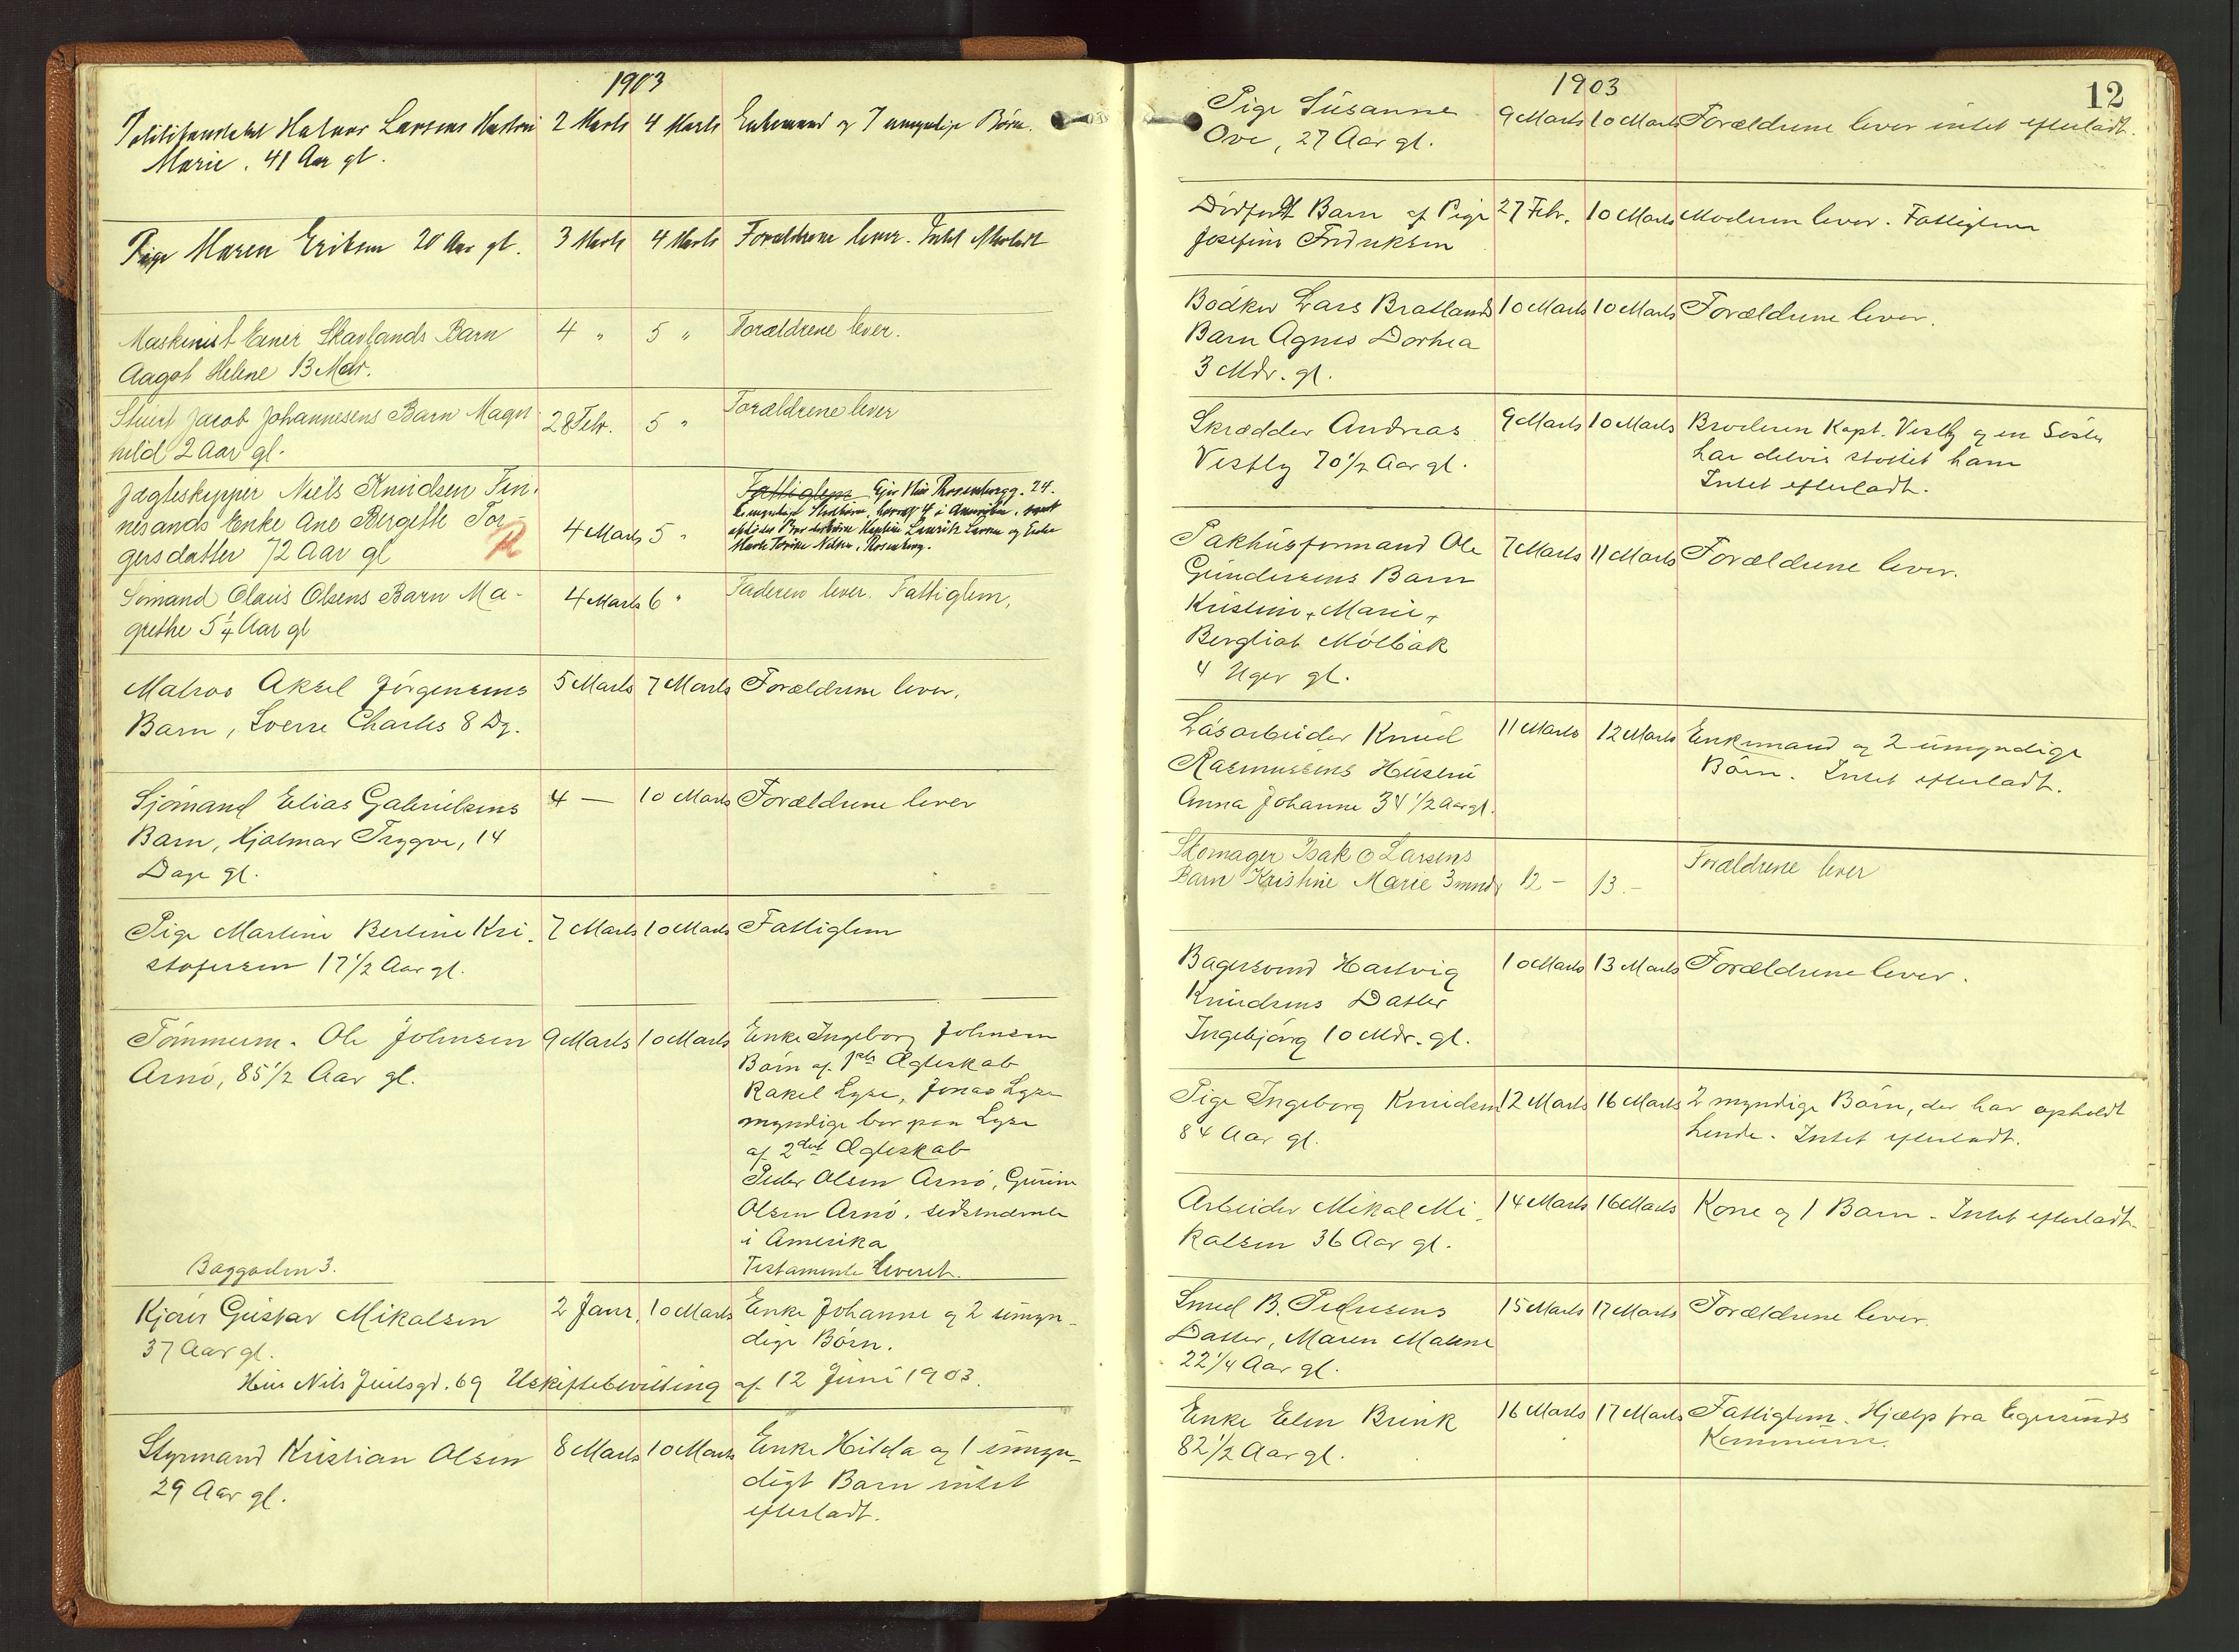 1903
Politikonstabel Halvor Larsens Hustru 2 Marts 4 Marts Enkemand og 7 umyndige Børn.
Marie. 41 Aar gl.
Pige Maren Eriksen 20 Aar gl. 3 Marts 4 Marts Forældrene lever. Intet efterladt
Maskinist Einer Skavlands Barn 4 " 5 " Forældrene lever.
Aagot Helene 13 Mdr.
Stuert Jacob Johannesens Barn Magn- 28 Febr. 5 " Forældrene lever
hild 2 Aar gl.
Jægteskipper Niels Knudsen Fin-
nesands Enke Ane Bergitte Tor-
gersdatter 72 Aar gl 4 Marts 5 "
R
Fattiglem. Ejer Hus Rosenbergg. 24.
4 i Amerika
Sømand Olaus Olsens Barn Ma- 4 Marts 6 " Faderen lever. Fattiglem,
grethe 5 1/4 Aar gl
Matros Aksel Jörgensens 5 Marts 7 Marts Forældrene lever.
Barn, Sverre Charles 8 Dg.
Sjömand Elias Gabrielsens 4 — 10 Marts Forældrene lever
Barn, Hjalmar Trygve, 14
Dage gl.
Pige Martine Bertine Kri- 7 Marts 10 Marts Fattiglem
stofersen 17 1/2 Aar gl.
Tömmerm. Ole Johnsen 9 Marts 10 Marts Enke Ingeborg Johnsen
Arnö, 85 1/2 Aar gl.
Börn af 1ste Ægteskab
Rakel Lyse, Jonas Lyse
myndige bor paa Lyse
af 2det Ægteskab
Peder Olsen Arnö, Gurine
Olsen Arnö, sidstnævnte
i Amerika
Testamente leveret.
Baggaden 3.
Kjörer Gustav Mikalsen 2 Janr. 10 Marts Enke Johanne og 2 umyn-
37 Aar gl. dige Börn.
Hus Nils Juelsgd. 69 Uskiftebevilling af 12 Juni 1903.
Styrmand Kristian Olsen 8 Marts 10 Marts Enke Hilda og 1 umyn-
29 Aar gl. digt Barn intet
efterladt.
1903
12
Pige Susanne 9 Marts 10 Marts Forældrene lever intet efterladt.
Ove, 27 Aar gl.
Dödfödt Barn af Pige 27 Febr. 10 Marts Moderen lever. Fattiglem
Josefine Fredriksen
Bödker Lars Bratlands 10 Marts 10 Marts Forældrene lever.
Barn Agnes Dorthea
3 Mdr. gl.
Skrædder Andreas 9 Marts 10 Marts Broderen Kapt. Vestly og en Söster
Vestly 70 1/2 Aar gl. har delvis stöttet ham
Intet efterladt.
Pakhusformand Ole 7 Marts 11 Marts Forældrene lever.
Gundersens Barn
Kristine, Marie,
Bergliot Mölbak
4 Uger gl.
Lösarbeider Knud 11 Marts 12 Marts Enkemand og 2 umyndige
Rasmussens Hustru Börn. Intet efterladt.
Anna Johanne 34 1/2 Aar gl.
Skomager Isak O Larsens Forældrene lever
Barn Kristine Marie 3 mndr 12 - 13. -
Bagersvend Hartvig 10 Marts 13 Marts Forældrene lever.
Knudsens Datter
Ingebjörg 10 Mdr. gl.
Pige Ingeborg Knudsen 12 Marts 16 Marts 2 myndige Börn, der har opholdt
84 Aar gl. hende. Intet efterladt.
Arbeider Mikal Mi- 14 Marts 16 Marts Kone og 1 Barn. Intet efterladt.
kalsen 36 Aar gl.
Smed B. Pedersens 15 Marts 17 Marts Forældrene lever.
Datter, Maren Malene
22 1/4 Aar gl.
Enke Elen Brink 16 Marts 17 Marts Fattiglem. Hjælp fra Egersunds
82 1/2 Aar gl. Kommune.